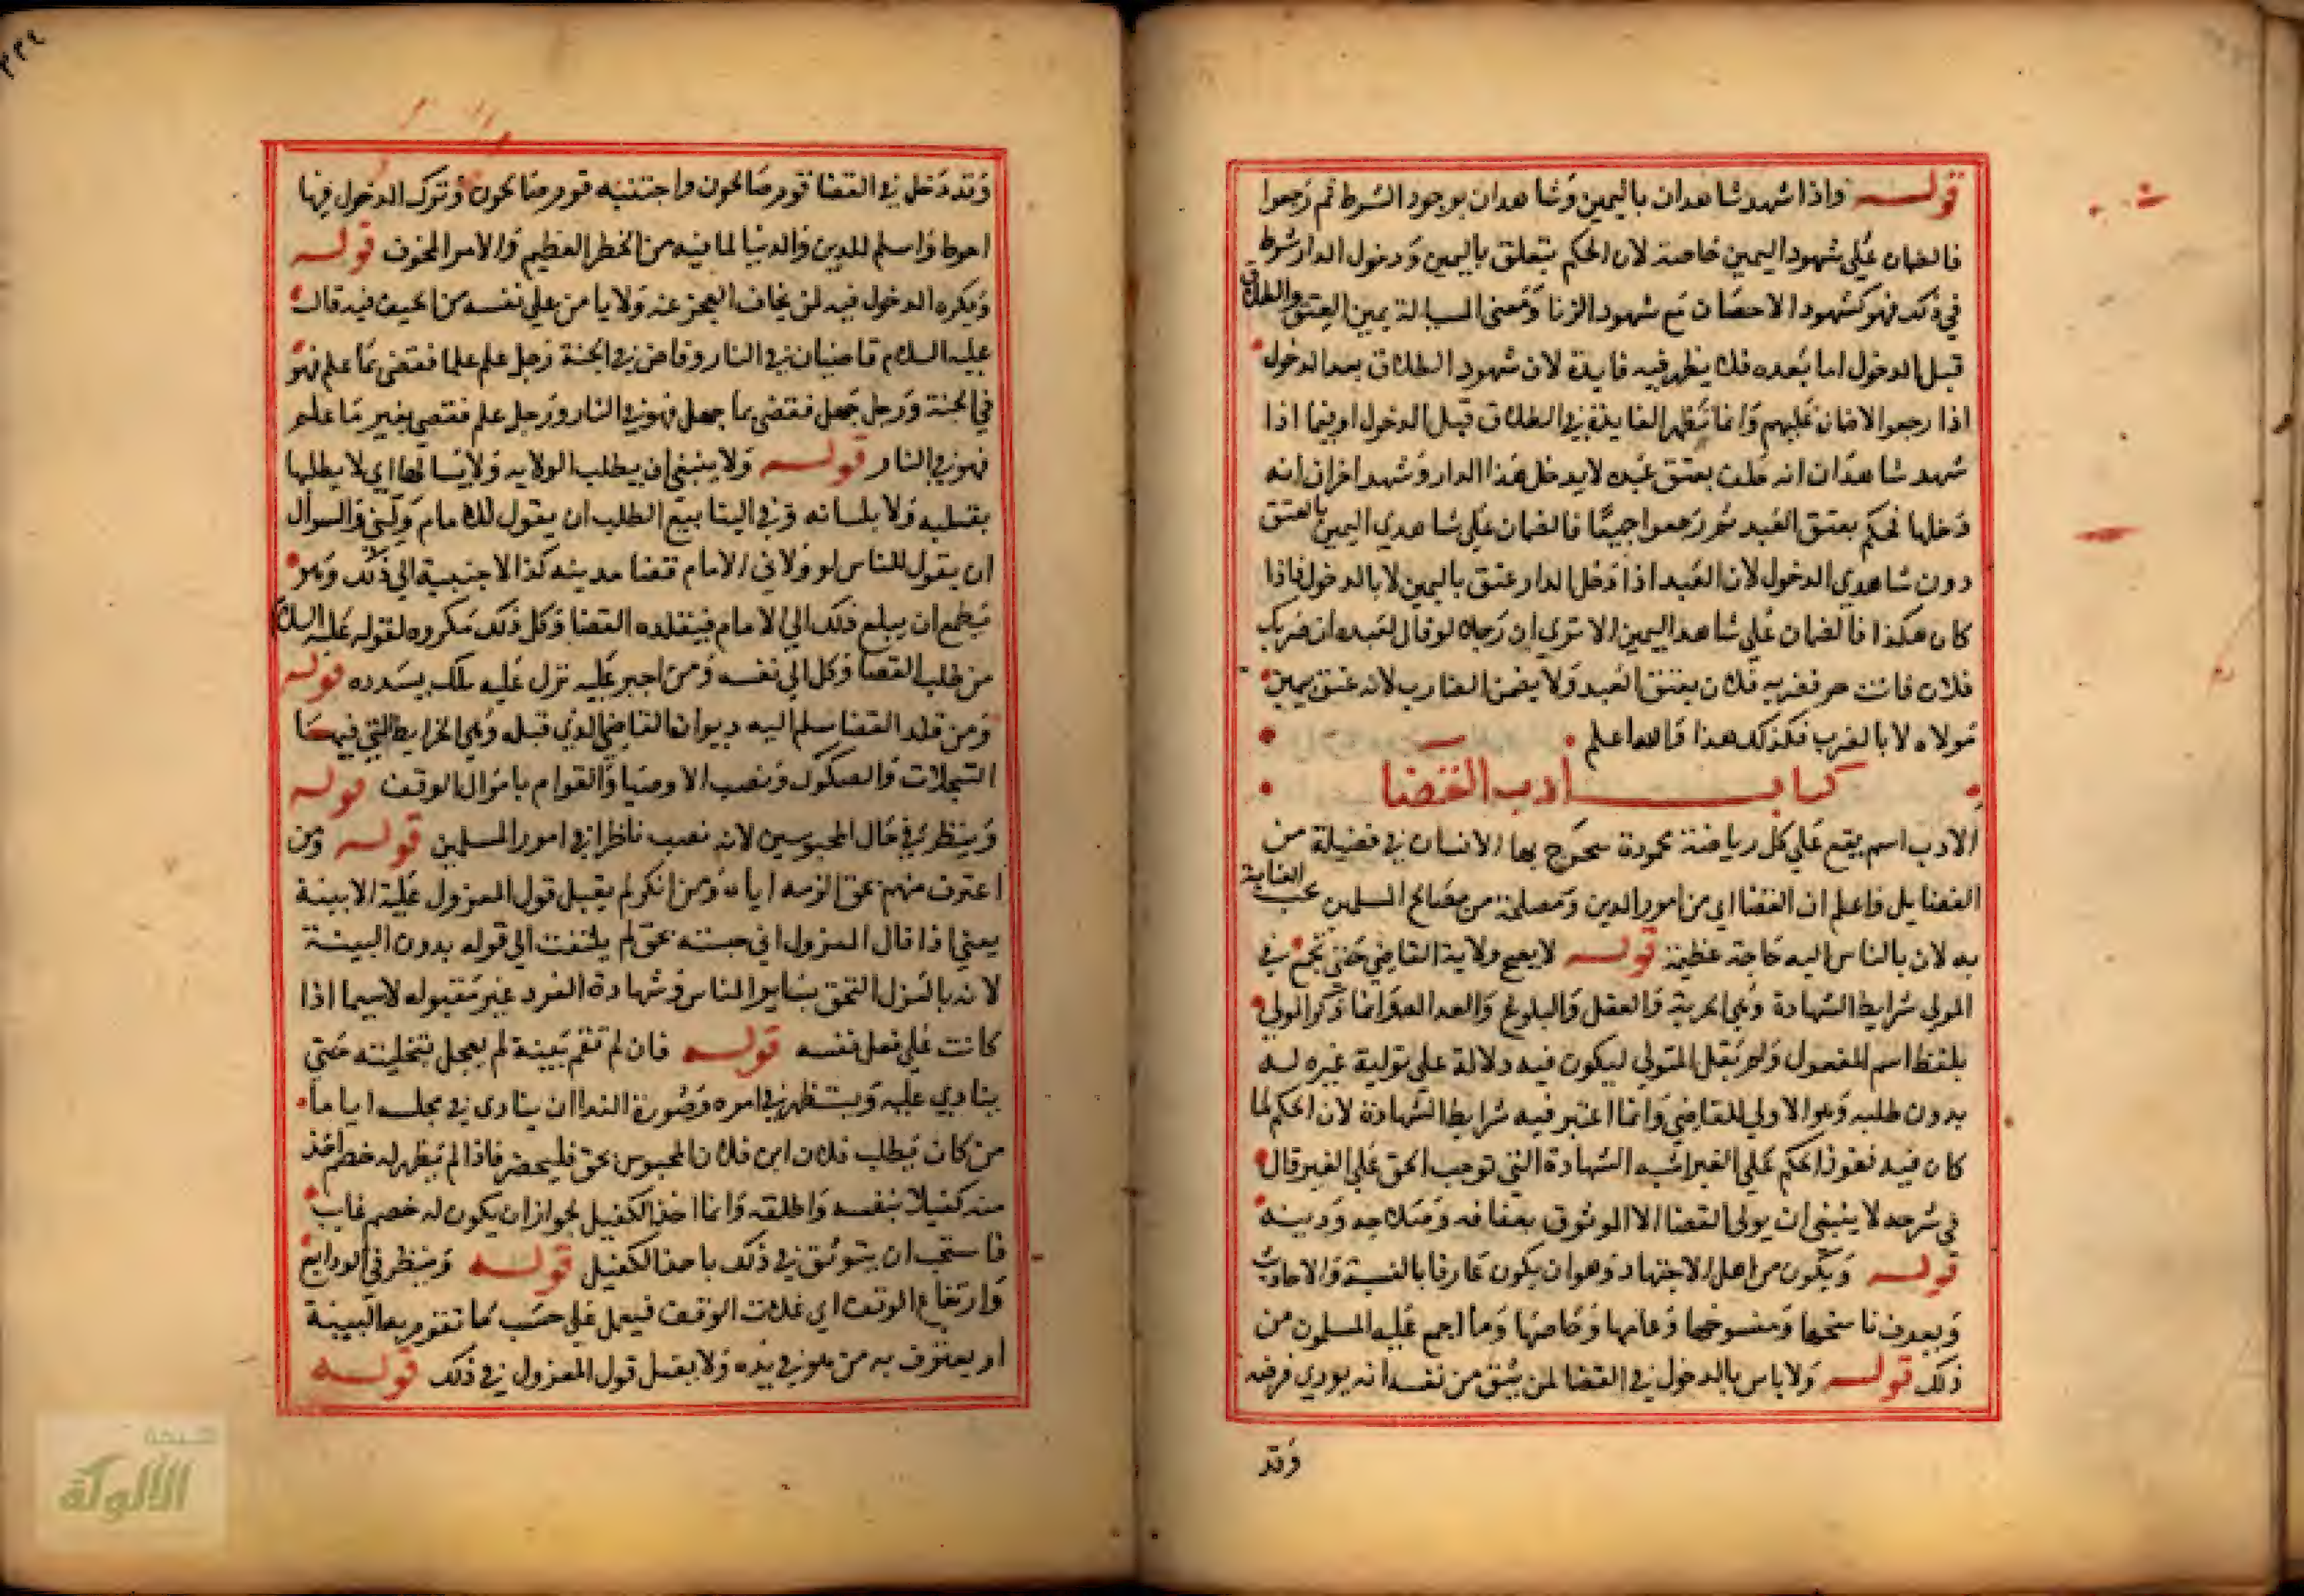 قوله واذا شهد شاهدان باليمين وشاهدان بوجود الشرط ثم رجعوا
فالضمان على شهود اليمين خاصة لان الحكم يتعلق باليمين ودخول الدار شرط
في ذلك فهو كشهود الاحصان مع شهود الزنا ومعنى المسالة يمين العتق والطلاق
قبل الدخول اما بعده فلا يظهر فيه فايدة لان شهود الطلاق بعد الدخول
اذا رجعوا لا ضمان عليهم وانما تظهر الفايدة في الطلاق قبل الدخول او فيما اذا
شهد شاهدان انه حلف بعتق عبده لا يدخل هذا الدار وشهد اخران انه
دخلها فحكم بعتق العبد ثم رجعوا جميعا فالضمان على شاهدي اليمين بالعتق
دون شاهدي الدخول لان العبد اذا دخل الدار عتق باليمين لا بالدخول فاذا
كان هكذا فالضمان على شاهد اليمين الا ترى ان رجلا لو قال لعبده ان ضربك
فلان فانت حر فضربه فلان يعتق العبد ولا يضمن الضارب لانه عتق بيمين
مولاه لا بالضرب فكذلك هذا والله اعلم
كتاب ادب القضا
الادب اسم يقع على كل رياضة محمودة يتخرج بها الانسان في فضيلة من
الفضايل واعلم ان القضا اي من امور الدين ومصلحة من مصالح المسلمين تجب العناية
به لان بالناس اليه حاجة عظيمة قوله لا يصح ولاية القاضي حتى تجتمع في
المولى شرايط الشهادة وهي الحرية والعقل والبلوغ والعدالة وانما ذكر المولى
بلفظ اسم المفعول ولم يقل المتولي ليكون فيه دلالة على تولية غيره له
بدون طلبه وهو الاولى للقاضي وانما اعتبر فيه شرايط الشهادة لان الحكم لما
كان فيه نفوذ الحكم على الغير اشبه الشهادة التي توجب الحق على الغير قال
في شرحه لا ينبغي ان يولى القضا الا الموثوق بعفافه وصلاحه ودينه
قوله ويكون من اهل الاجتهاد وهو ان يكون عارفا بالسنة والاحاديث
ويعرف ناسخها ومنسوخها وعامها وخاصها وما اجمع عليه المسلمون من
ذلك قوله ولا باس بالدخول في القضا لمن يثق من نفسه انه يودي فرضه
وقد
٢٣٤
وقد دخل في القضا قوم صالحون واجتنبه قوم صالحون وترك الدخول فيها
احوط واسلم للدين والدنيا لما فيه من الخطر العظيم والامر المخوف قوله
ويكره الدخول فيه لمن يخاف العجز عنه ولا يامن على نفسه من الحيف فيه قال
عليه السلام قاضيان في النار وقاض في الجنة رجل علم علما فقضى بما علم فهو
في الجنة ورجل جهل فقضى بما جهل فهو في النار ورجل علم فقضى بغير ما علم
فهو في النار قوله ولا ينبغي ان يطلب الولايه ولا يسالها اي لا يطلبها
بقلبه ولا بلسانه وفي الينابيع الطلب ان يقول للامام ولني والسوال
ان يقول للناس لو ولاني الامام قضا مدينه كذا لاجبته الى ذلك وهو
يطمع ان يبلغ ذلك الى الامام فيقلده القضا وكل ذلك مكروه لقوله عليه السلام
من طلب القضا وكل الى نفسه ومن اجبر عليه نزل عليه ملك يسدده قوله
ومن قلد القضا سلم اليه ديوان القاضي الذي قبله وهي الخرايط التي فيها
السجلات والصكوك ونصب الاوصيا والقوام باموال الوقف قوله
وينظر في حال المحبوسين لانه نصب ناظرا في امور المسلمين قوله ومن
اعترف منهم بحق الزمه اياه ومن انكر لم يقبل قول المعزول عليه الا ببينة
يعني اذا قال المعزول اني حبسته بحق لم يلتفت الى قوله بدون البينة
لانه بالعزل التحق بساير الناس وشهادة الفرد غير مقبوله لا سيما اذا
كانت على فعل نفسه قوله فان لم تقم بينة لم يعجل بتخليته حتى
ينادي عليه ويستظهر في امره وصورة الندا ان ينادى في مجلسه اياما
من كان يطلب فلان ابن فلان المحبوس بحق فليحضر فاذا لم يظهر له خصم اخذ
منه كفيلا بنفسه واطلقه وانما اخذ الكفيل لجواز ان يكون له خصم غايب
فاستحب ان يتوثق في ذلك باخذ الكفيل قوله وينظر في الودايع
وارتفاع الوقف اي غلات الوقف فيعمل على حسب ما تقوم به البينة
او يعترف به من هو في يده ولا يقبل قول المعزول في ذلك قوله
شبكة
الألوكة